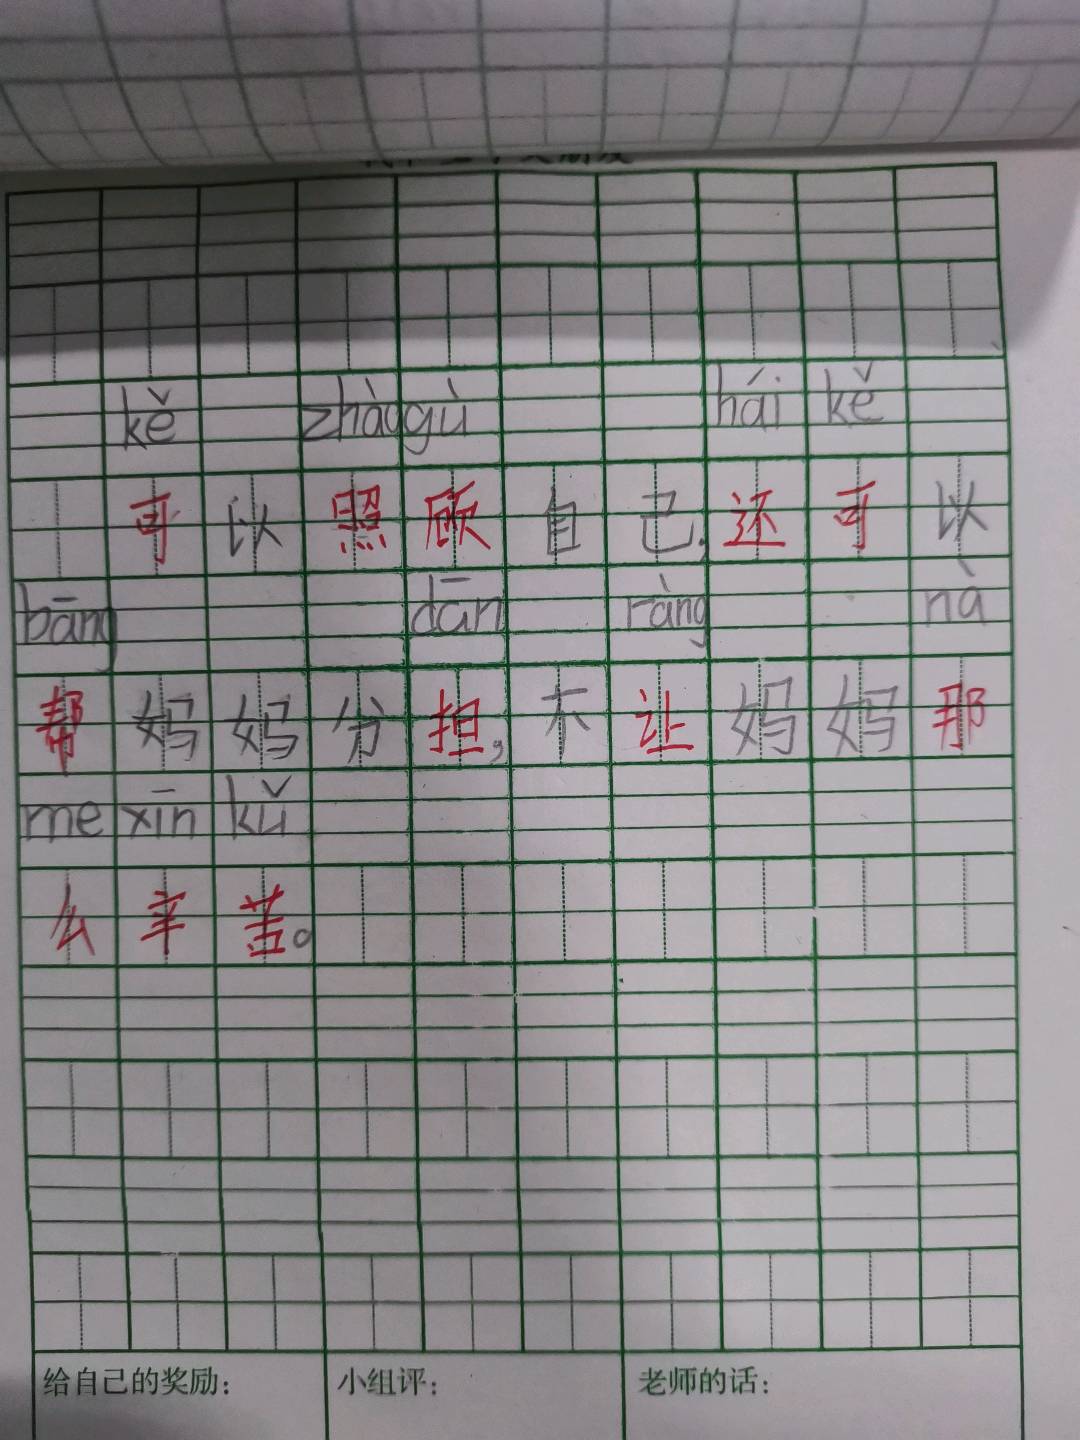 kě zhào gù hái kě
可以照顾自己.还可以
bāng dān ràng nà
帮妈妈分担,不让妈妈那
me xīn kǔ
么辛苦。
给自己的奖励: 小组评: 老师的话: